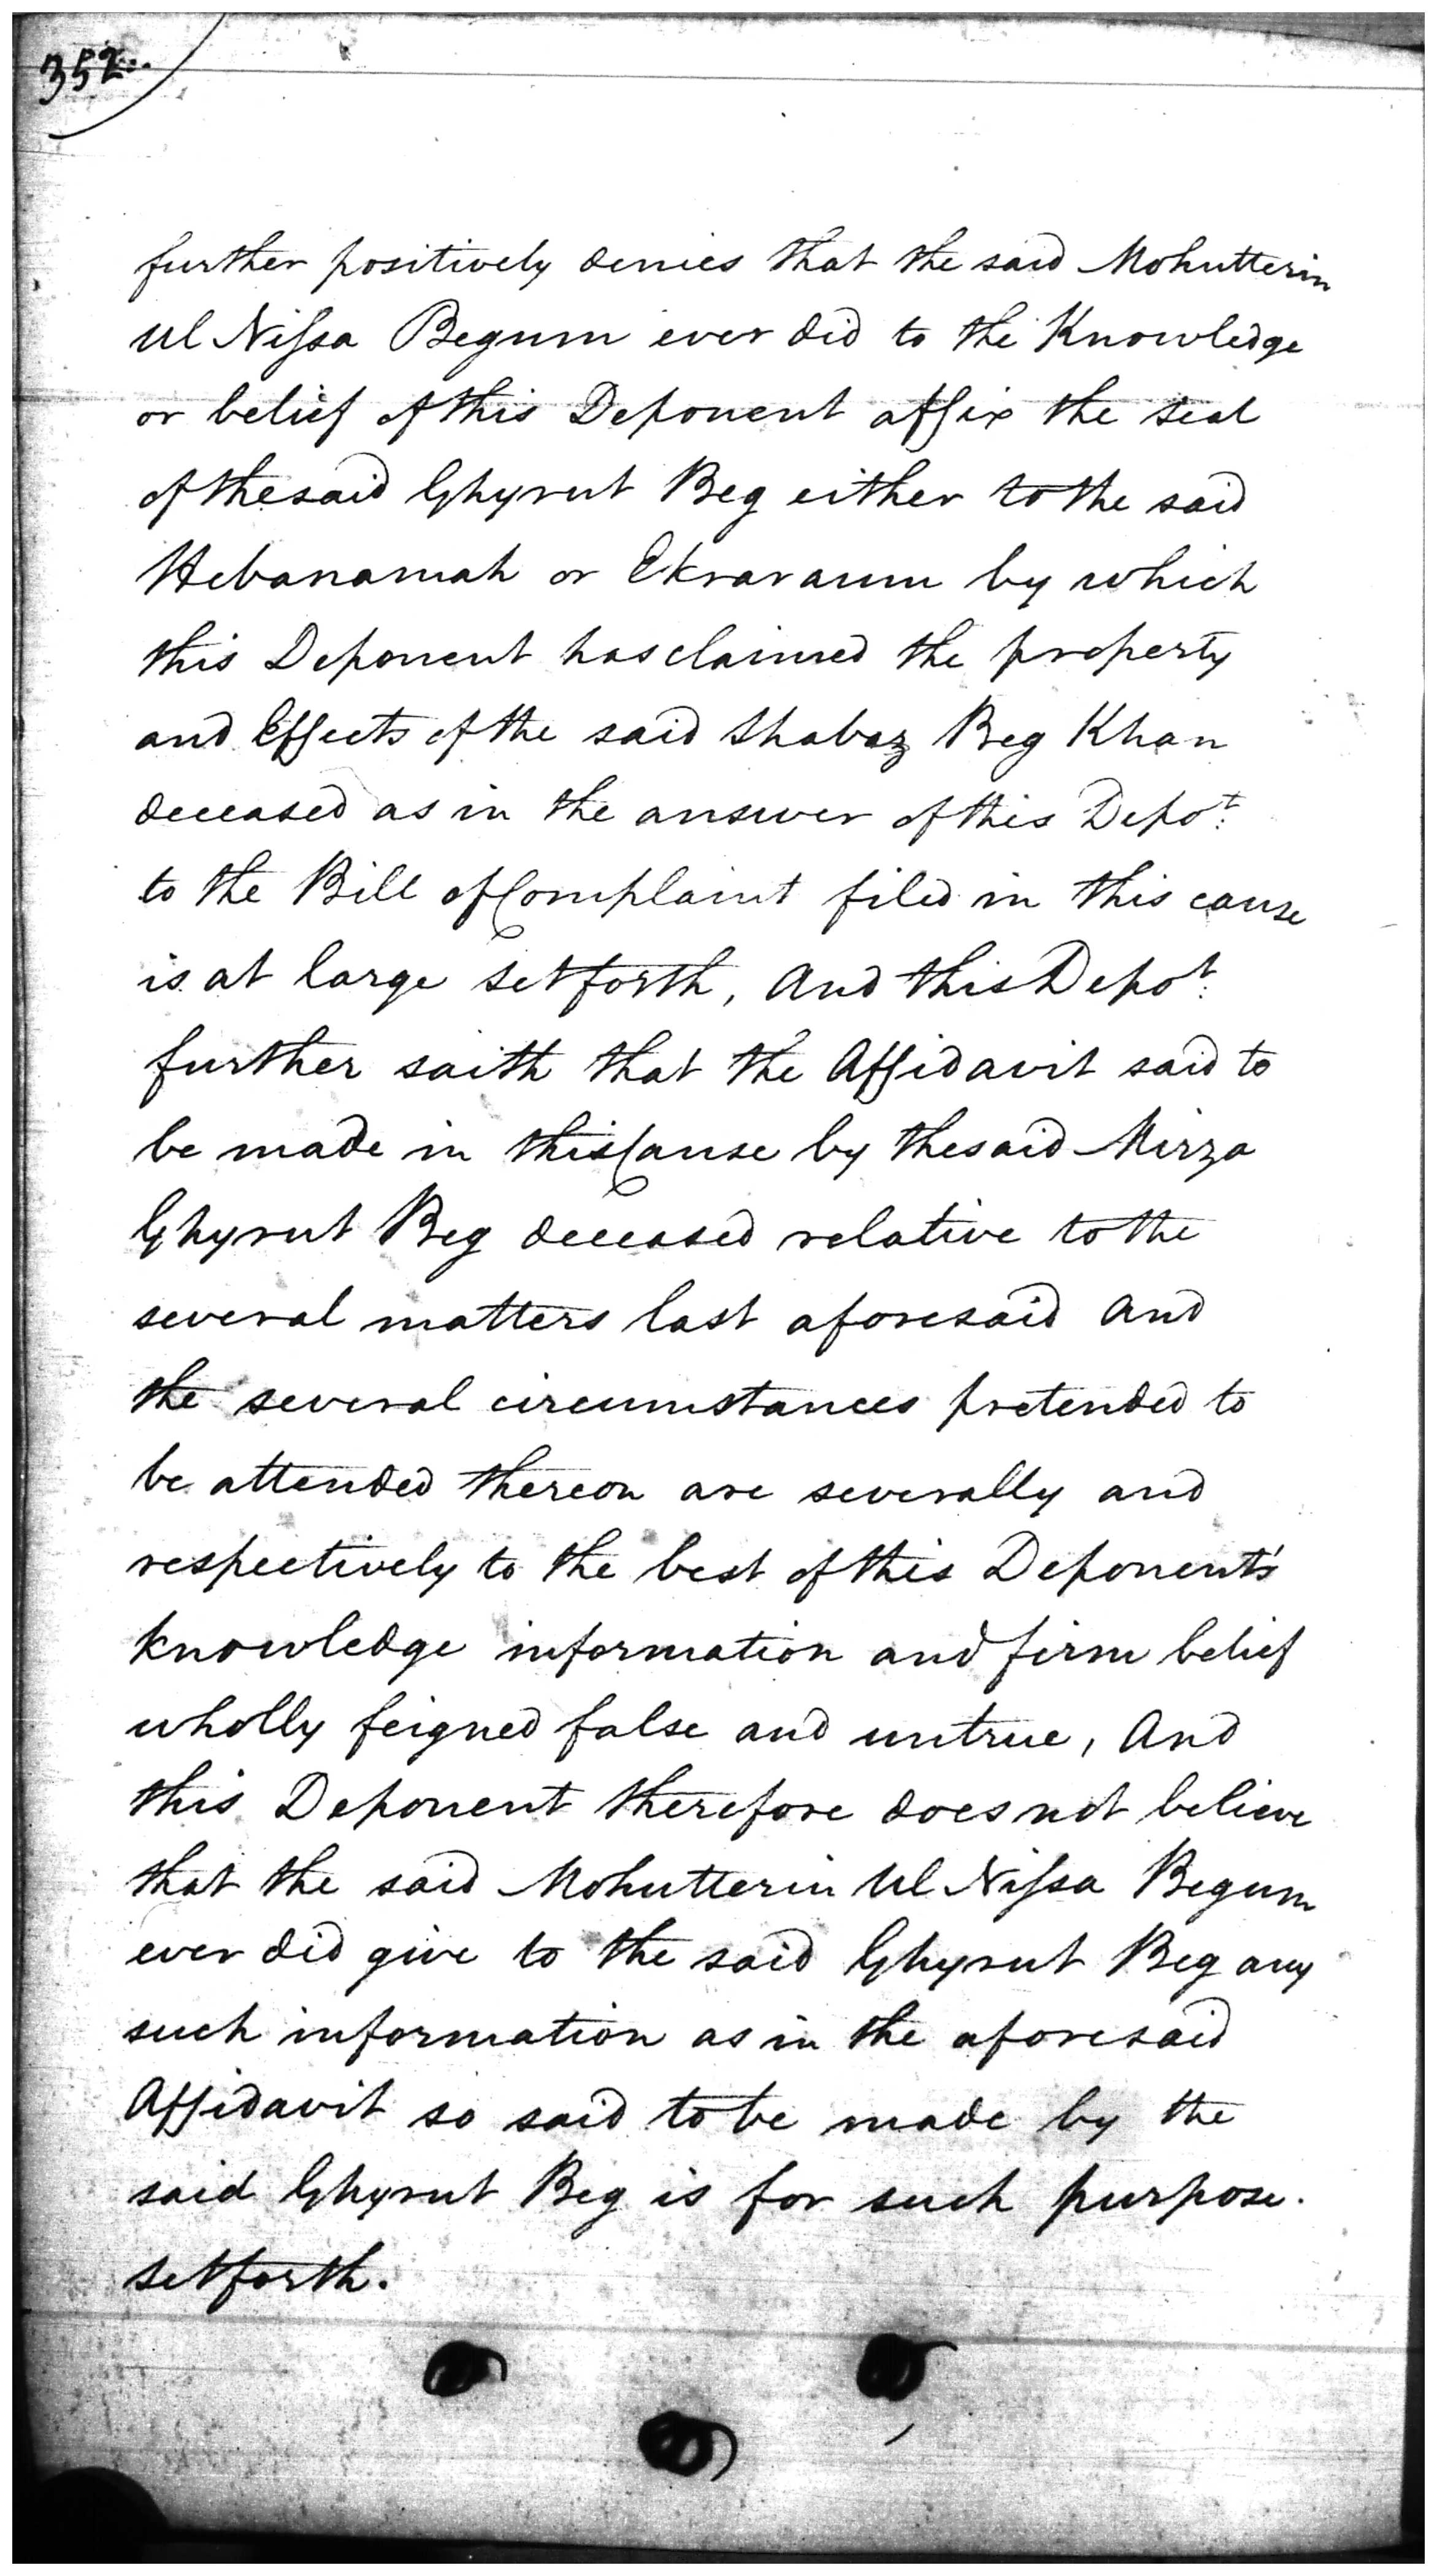 352
further positively denies that the said Mohutterin
Ul Niſsa Begum ever did to the Knowledge
or belief of this Deponent affix the seal
of the said Ghyrut Beg either to the said
Hebanamah or Ekraraum by which
this Deponent has claimed the property
and Effects of the said Shabaz Beg Khan
deceased as in the answer of this Depot.
to the Bill of Complaint filed in this cause
is at large set forth, And this Depot.
further saith that the Affidavit said to
be made in this Cause by the said Mirza
Ghyrut Beg deceased relative to the
several matters last aforesaid and
the several circumstances pretended to
be attended thereon are severally and
respectively to the best of this Deponent's
knowledge information and firm belief
wholly feigned false and untrue, And
this Deponent therefore does not believe
that the said Mohutterin Ul Niſsa Begum
ever did give to the said Ghyrut Beg any
such information as in the aforesaid
Affidavit so said to be made by the
said Ghyrut Beg is for such purpose.
set forth.